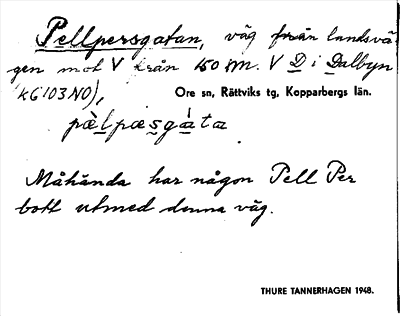 Pellpersgatan, väg från landsvä-
gen mot V från 150 m. V D i Dalbyn
(KG 103 NO),
Ore sn, Rättviks tg, Kopparbergs län.
pæ̀lpæsgáta
Måhända har någon Pell Per
bott utmed denna väg.
THURE TANNERHAGEN 1948.